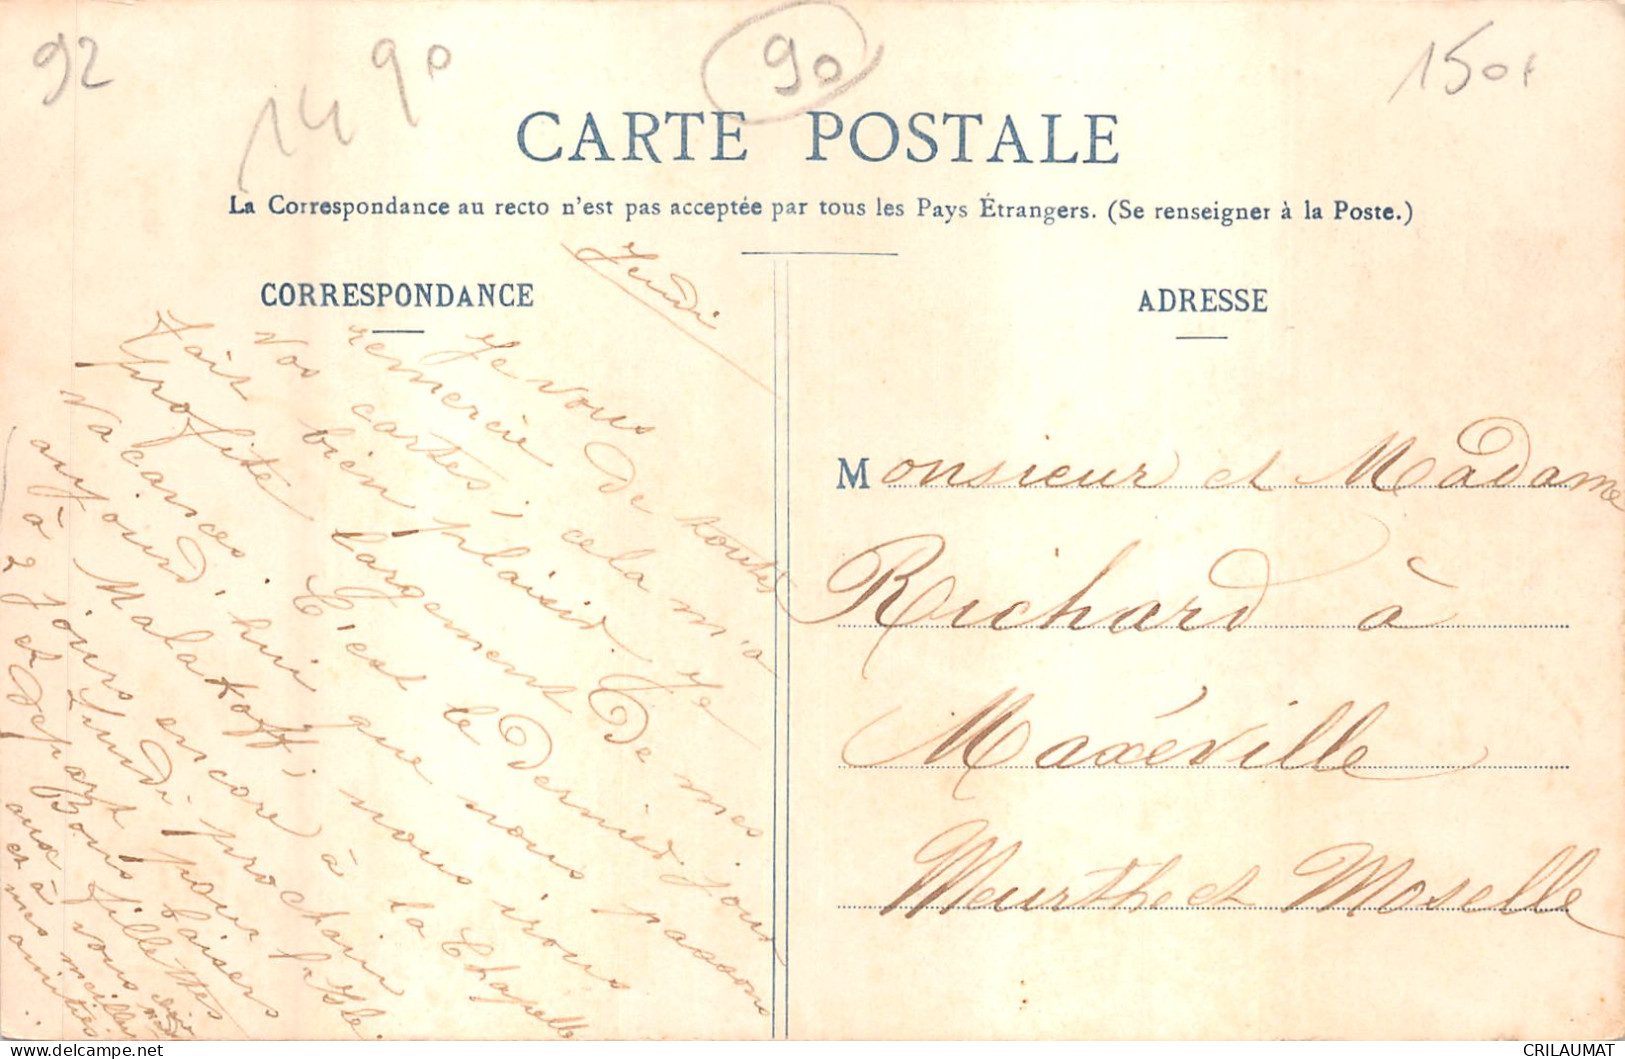 92
14
90
90
150f
CARTE POSTALE
La Correspondance au recto n'est pas acceptée par tous les Pays Étrangers. (Se renseigner à la Poste.)
CORRESPONDANCE
Jeudi
Je vous de toutes
remercie cela m'a
Vos cartes, Je
fait bien plaisir. De mes
profité largement
Vacances. C'est le dernier jour
aujourd'hui que nous passons
à Malakoff, nous irons
2 jours encore à la Chapelle
et Lundi prochain
départ pour l'Isle.
Bons baisers
aux fillettes
et à vous
mes meilleures
amitiés
ADRESSE
Monsieur et Madame
Richard à
Maxéville
Meurthe et Moselle
CRILAUMAT